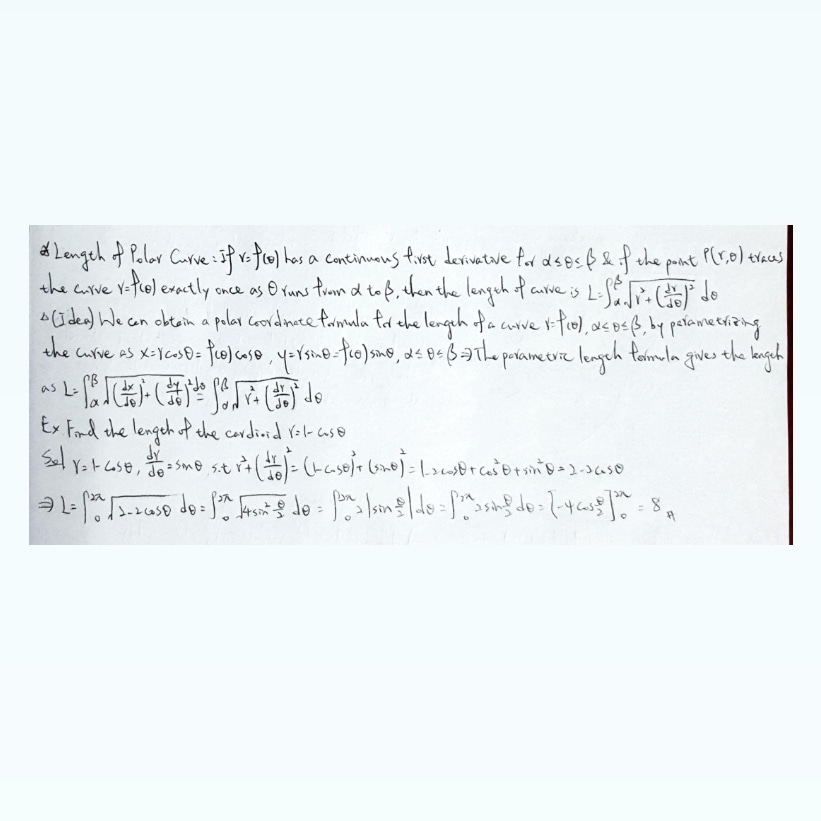 * Length of Polar Curve: If r=f(θ) has a continuous first derivative for α≤θ≤β & if the point P(r,θ) traces
the curve r=f(θ) exactly once as θ runs from α to β, then the length of curve is L=∫_α^β √(r²+(dr/dθ)²) dθ
△(Idea) We can obtain a polar coordinate formula for the length of a curve r=f(θ), α≤θ≤β, by parametrizing
the curve as x=rcosθ=f(θ)cosθ, y=rsinθ=f(θ)sinθ, α≤θ≤β ⇒ The parametric length formula gives the length
as L=∫_α^β √((dx/dθ)²+(dy/dθ)²) dθ = ∫_α^β √(r²+(dr/dθ)²) dθ
Ex Find the length of the cardioid r=1-cosθ
Sol r=1-cosθ, dr/dθ=sinθ s.t r²+(dr/dθ)²=(1-cosθ)²+(sinθ)²=1-2cosθ+cos²θ+sin²θ=2-2cosθ
⇒ L=∫_0^2π √(2-2cosθ) dθ=∫_0^2π √(4sin²θ/2) dθ=∫_0^2π 2|sinθ/2|dθ=∫_0^2π 2sinθ/2 dθ=[-4cosθ/2]_0^2π=8